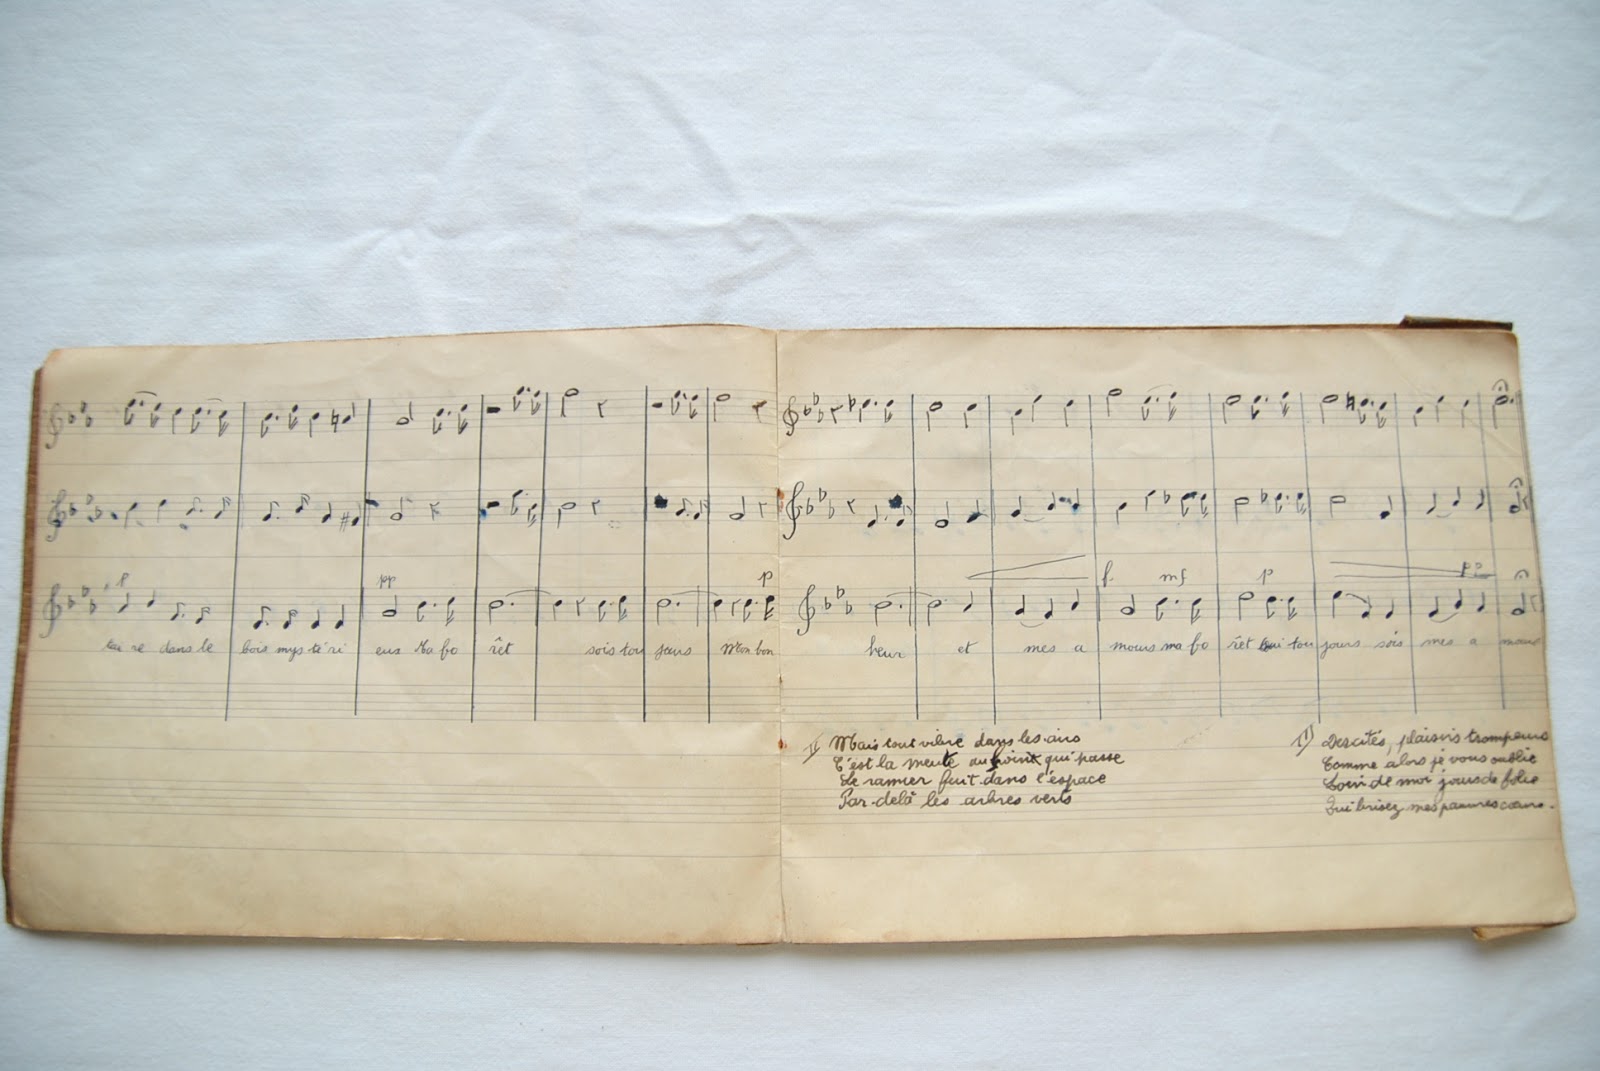 p
pp
p
tai re dans le bois mys té ri eux Ma fo rêt sois tou jours Mon bon
f mf p pp
heur et mes a mours ma fo rêt tou jours sois mes a mours
II Mais tout vibre dans les airs
C'est la meute au point qui passe
Le ramier fuit dans l'espace
Par-delà les arbres verts
Des cités, plaisirs trompeurs
Comme alors je vous oublie
Loin de moi jours de folie
Qui brisez mes pauvres cœurs.